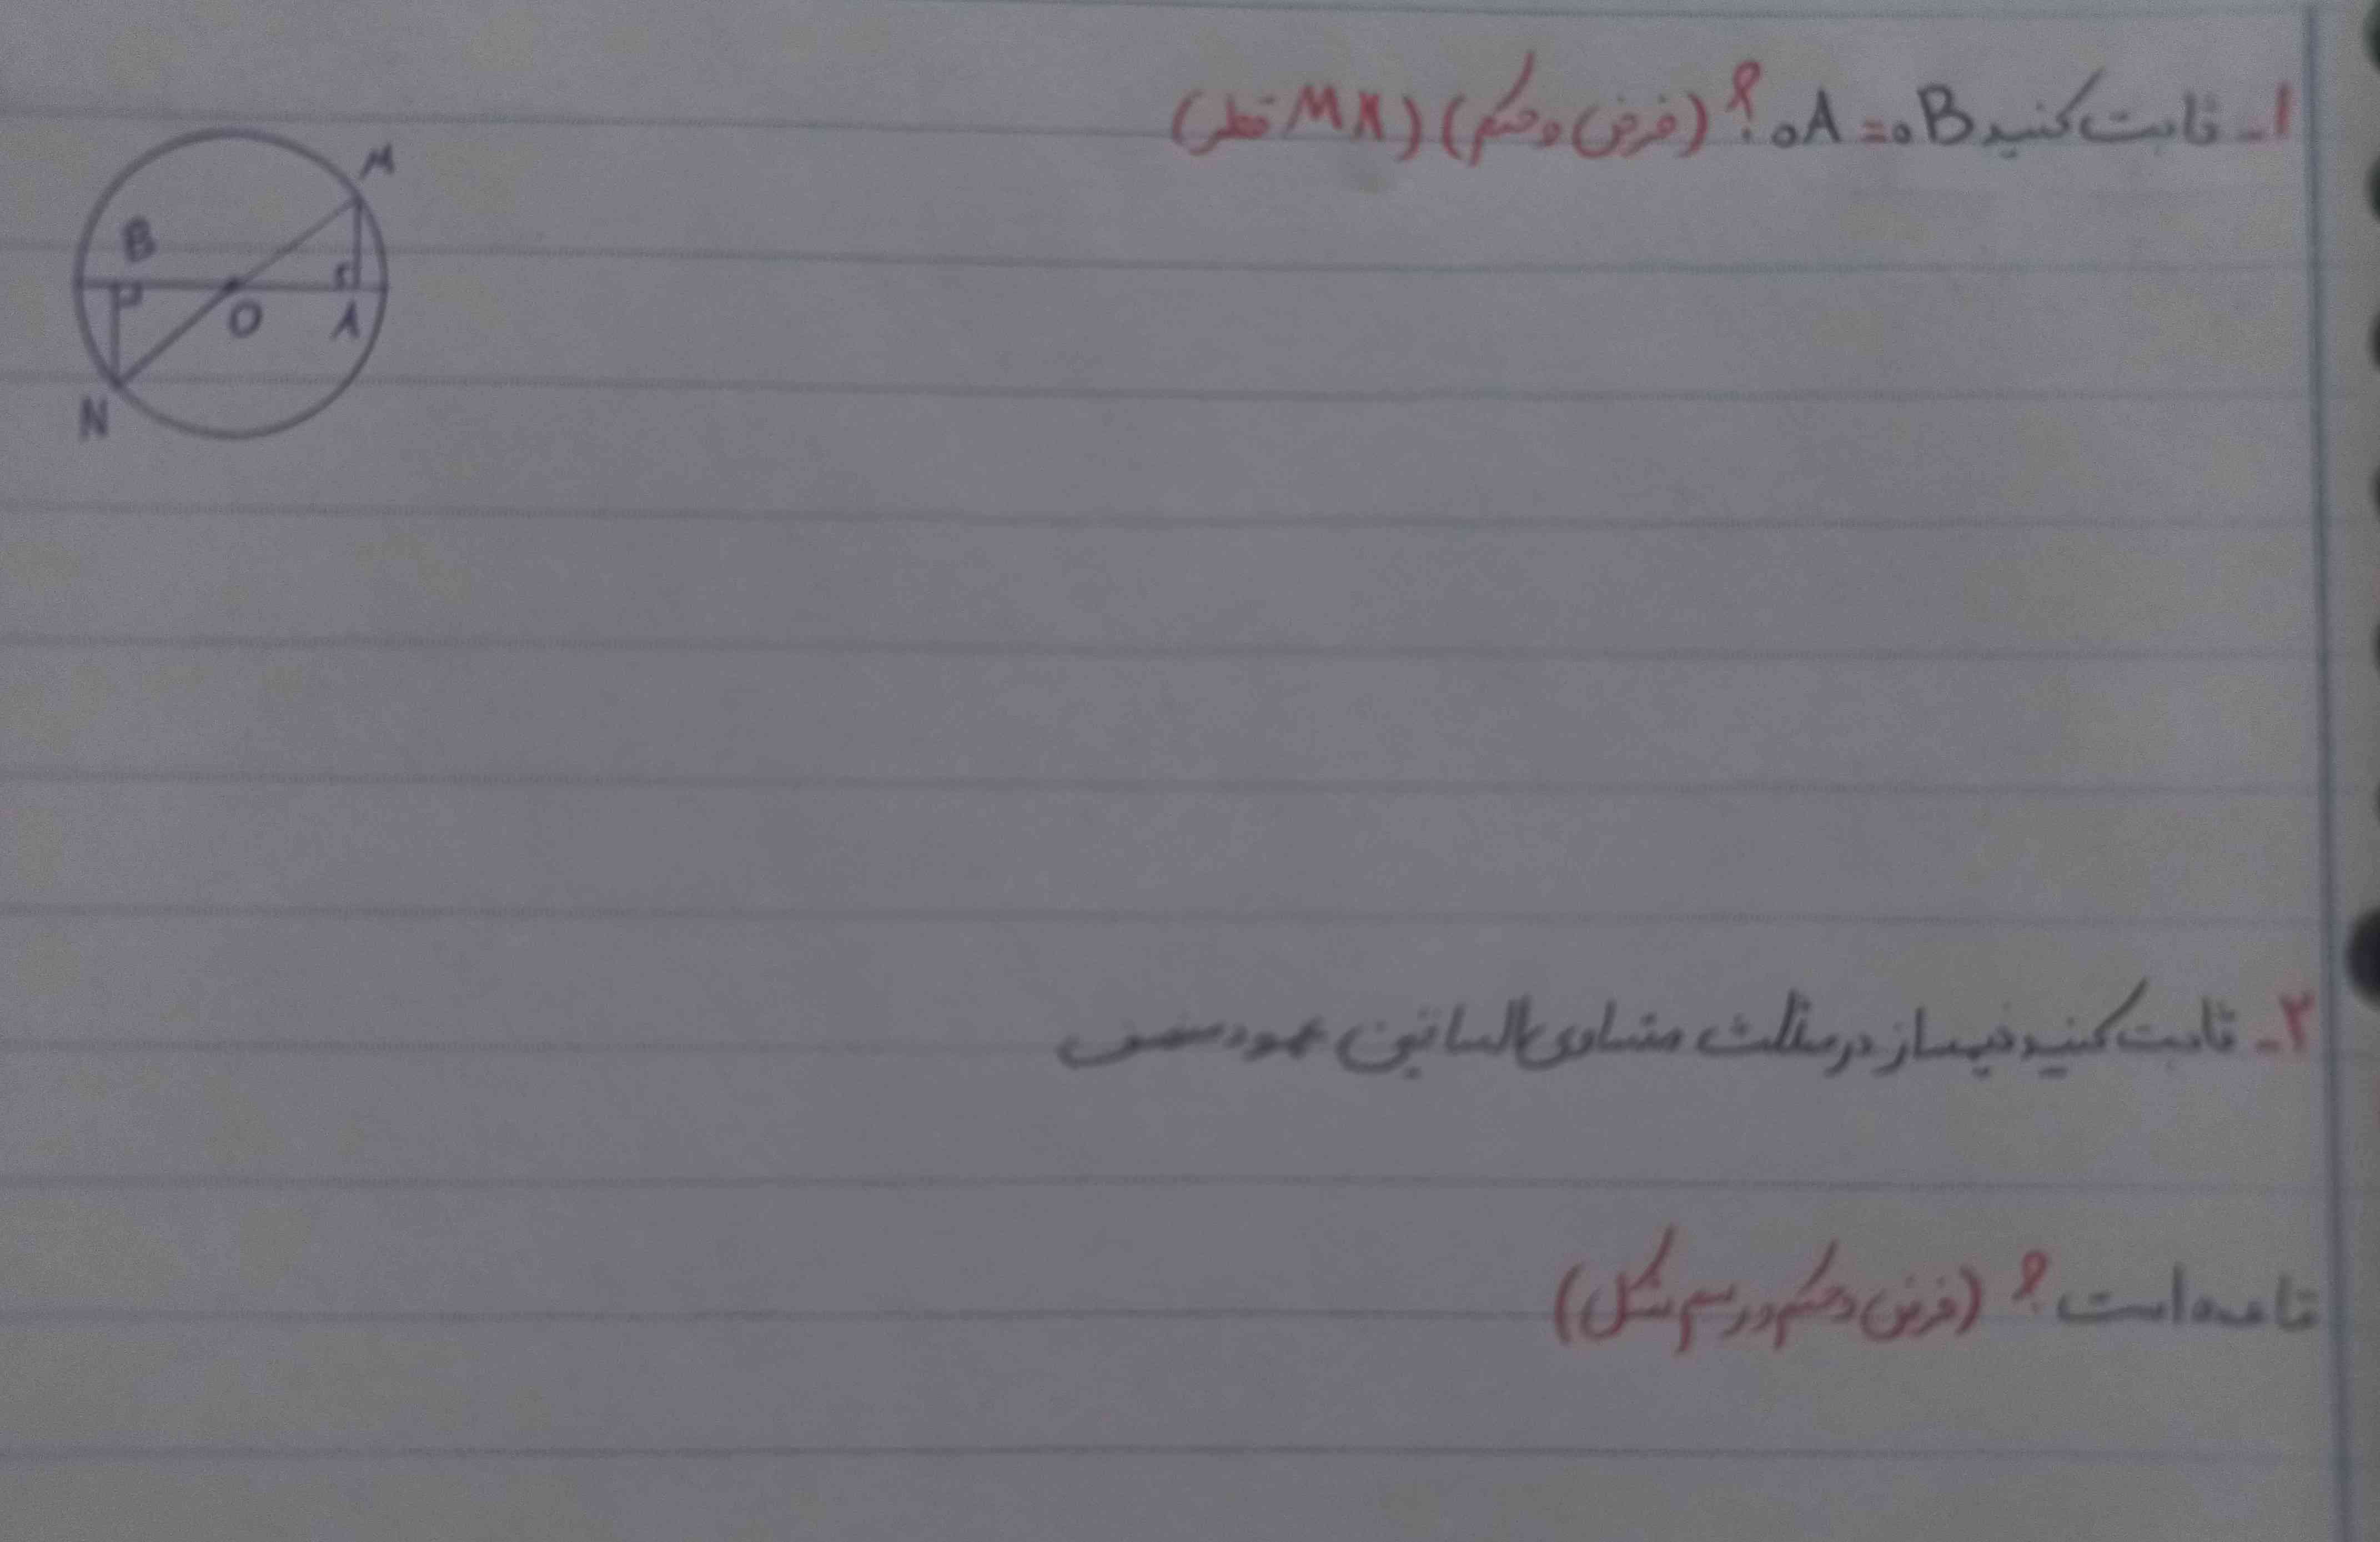 ۱- ثابت کنید oA = oB ؟ (فرض و حکم) (MN قطر)
M
B
O
A
N
۲- ثابت کنید نیمساز در مثلث متساوی الساقین عمود منصف
قاعده است ؟ (فرض و حکم و رسم شکل)